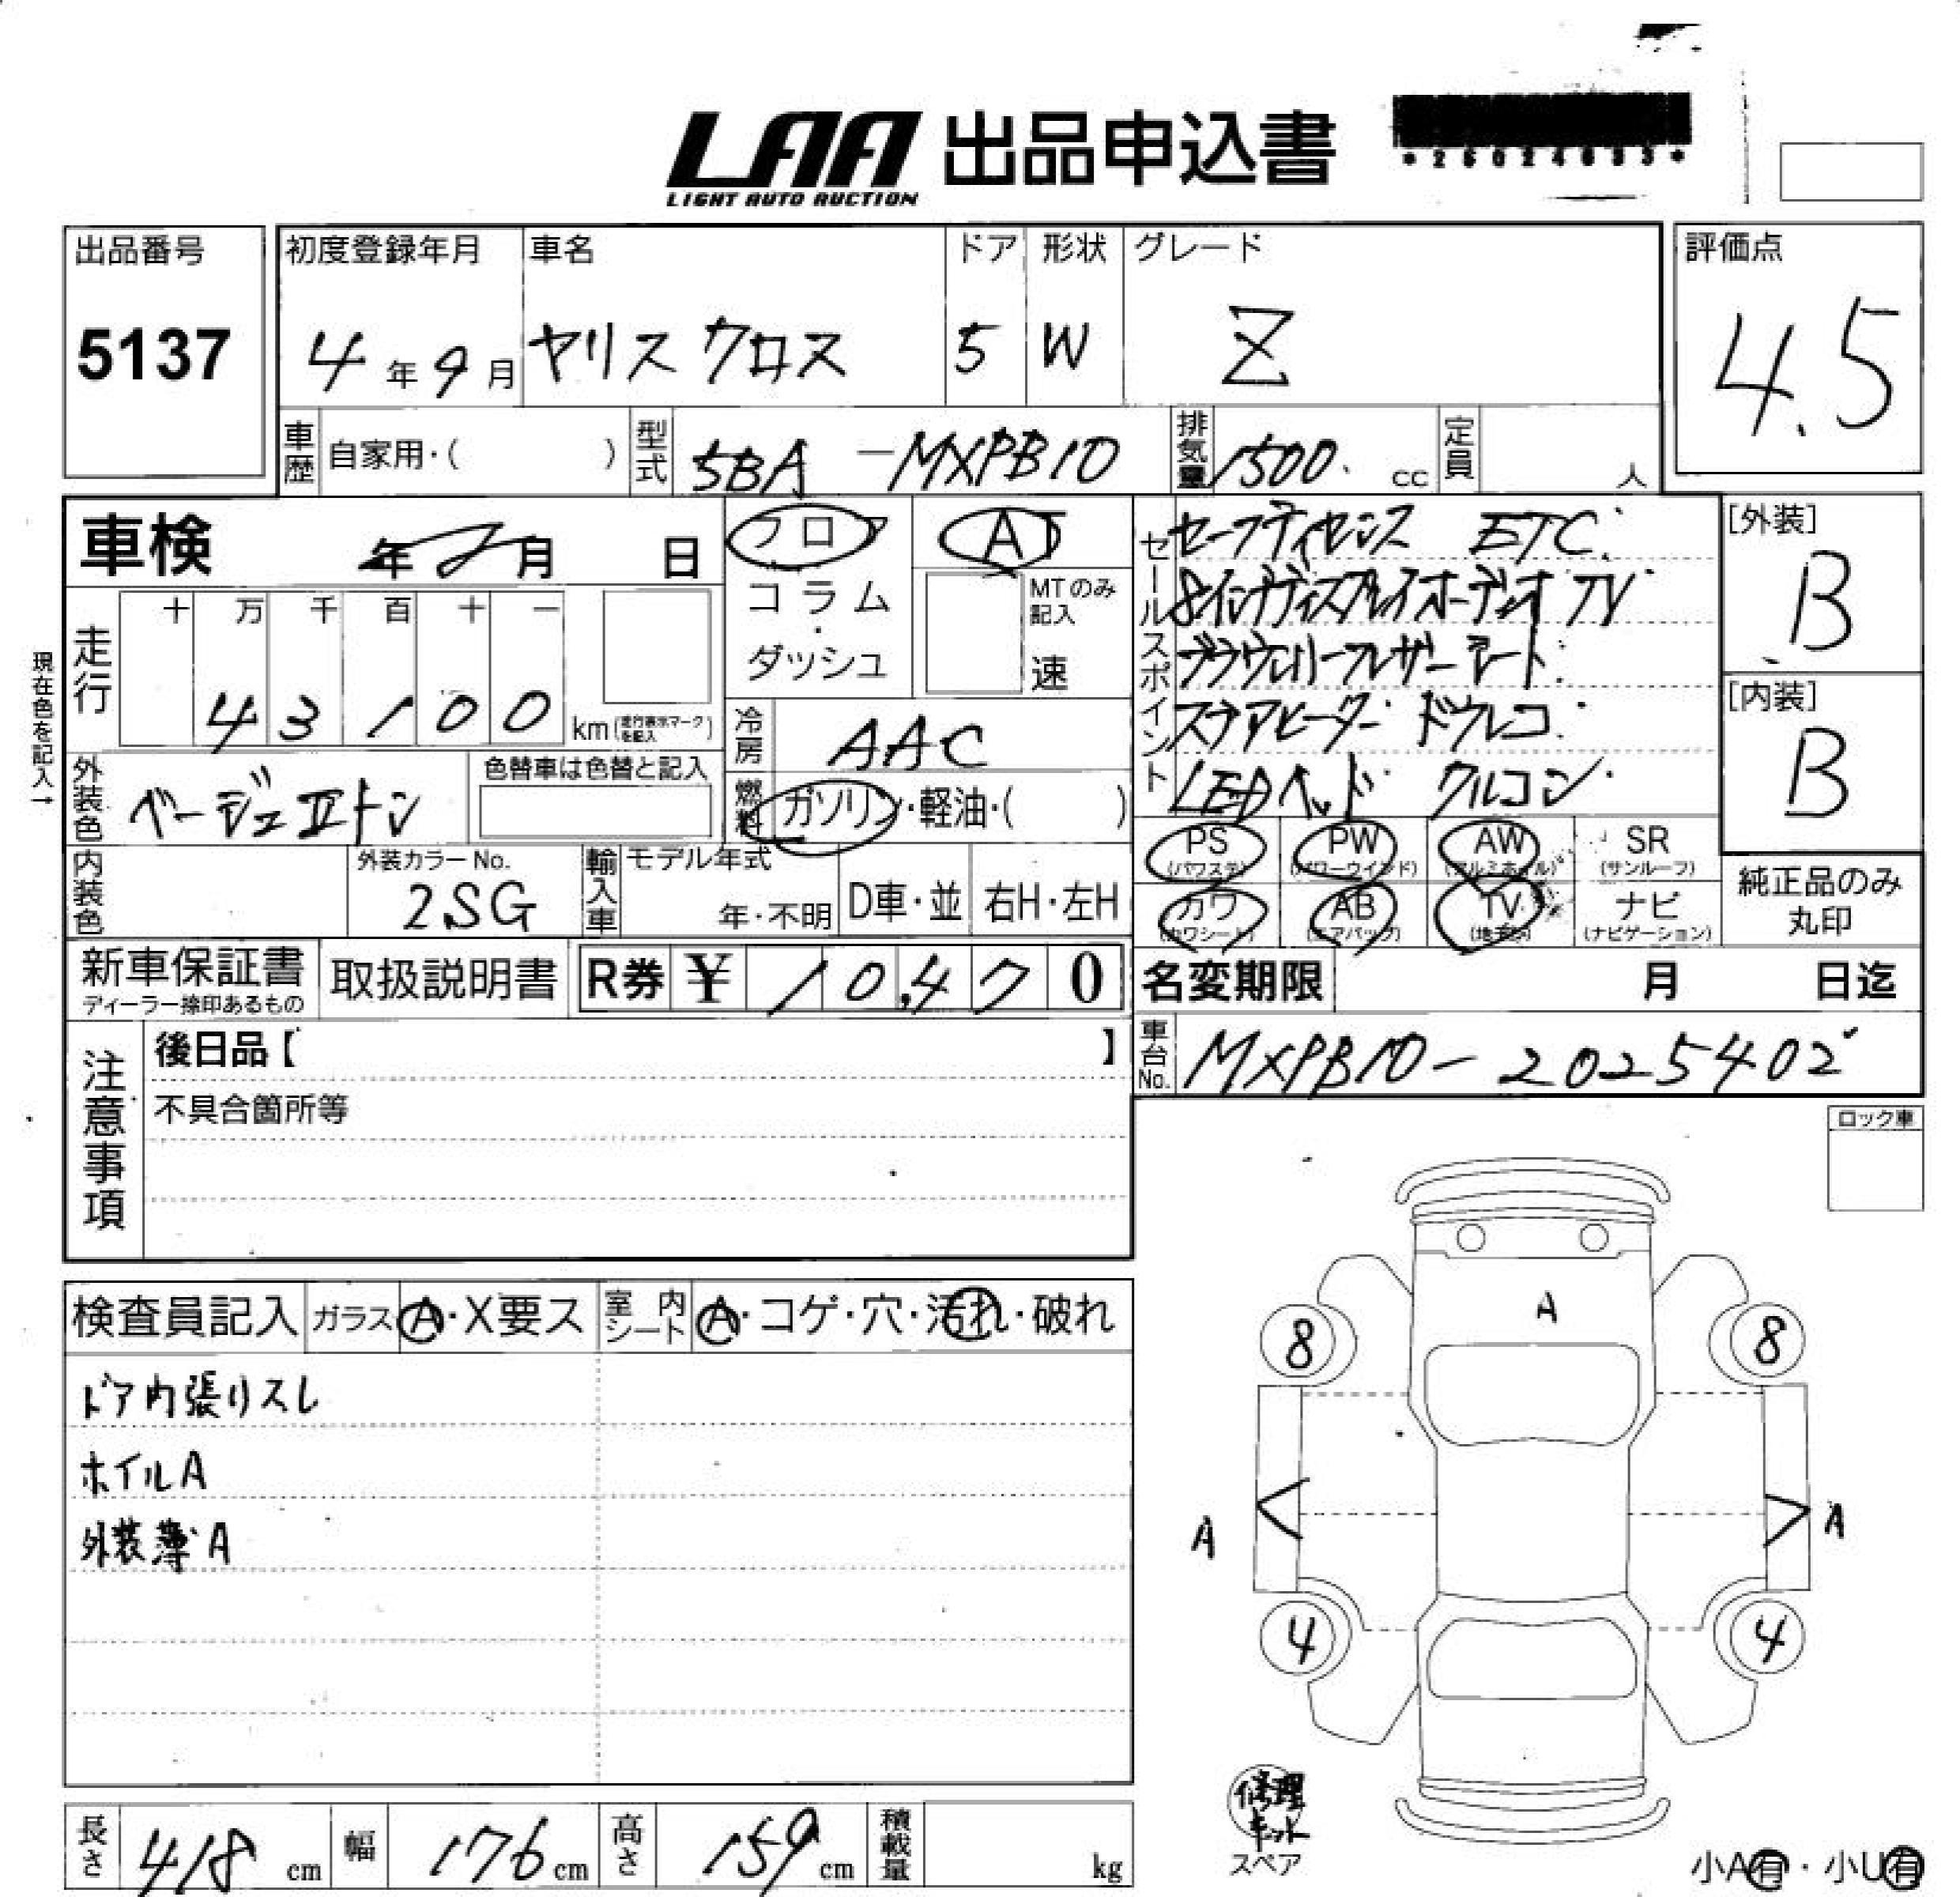 LAA 出品申込書
LIGHT AUTO AUCTION
出品番号
5137
初度登録年月
4年9月
車名
ヤリス クロス
ドア
5
形状
W
グレード
Z
評価点
4.5
車歴 自家用・( )
型式 5BA-MXPB10
排気量 1500. cc
定員 人
車検 年 月 日
フロア
コラム・ダッシュ
AT
MTのみ記入
速
セールスポイント
セーフティセンス ETC.
8インチディスプレイオーディオ TV
ブラウンハーフレザーシート.
ステアヒーター ドラレコ.
LEDヘッド クルコン.
[外装]
B
[内装]
B
現在色を記入→
走行 十 万 千 百 十 一
43100 km (走行表示マークを記入)
冷房 AAC
外装色 ベージュⅡトン
色替車は色替と記入
燃料 ガソリン・軽油・( )
内装色
外装カラーNo.
2SG
輸入車 モデル年式
年・不明 D車・並 右H・左H
PS (パワステ) PW (パワーウインド) AW (アルミホイル) SR (サンルーフ)
カワ (カワシート) AB (エアバッグ) TV ナビ (ナビゲーション)
純正品のみ丸印
新車保証書
ディーラー捺印あるもの
取扱説明書
R券 ¥ 10,470
名変期限 月 日迄
車台No. MXPB10-2025402
注意事項
後日品【 】
不具合箇所等
ロック車
検査員記入 ガラス A・X要ス 室内シート A・コゲ・穴・汚れ・破れ
ドア内張りスレ
ホイルA
外装薄A
A
8 8
A A
4 4
修理キット
スペア
小A有・小U有
長さ 418 cm 幅 176 cm 高さ 159 cm 積載量 kg